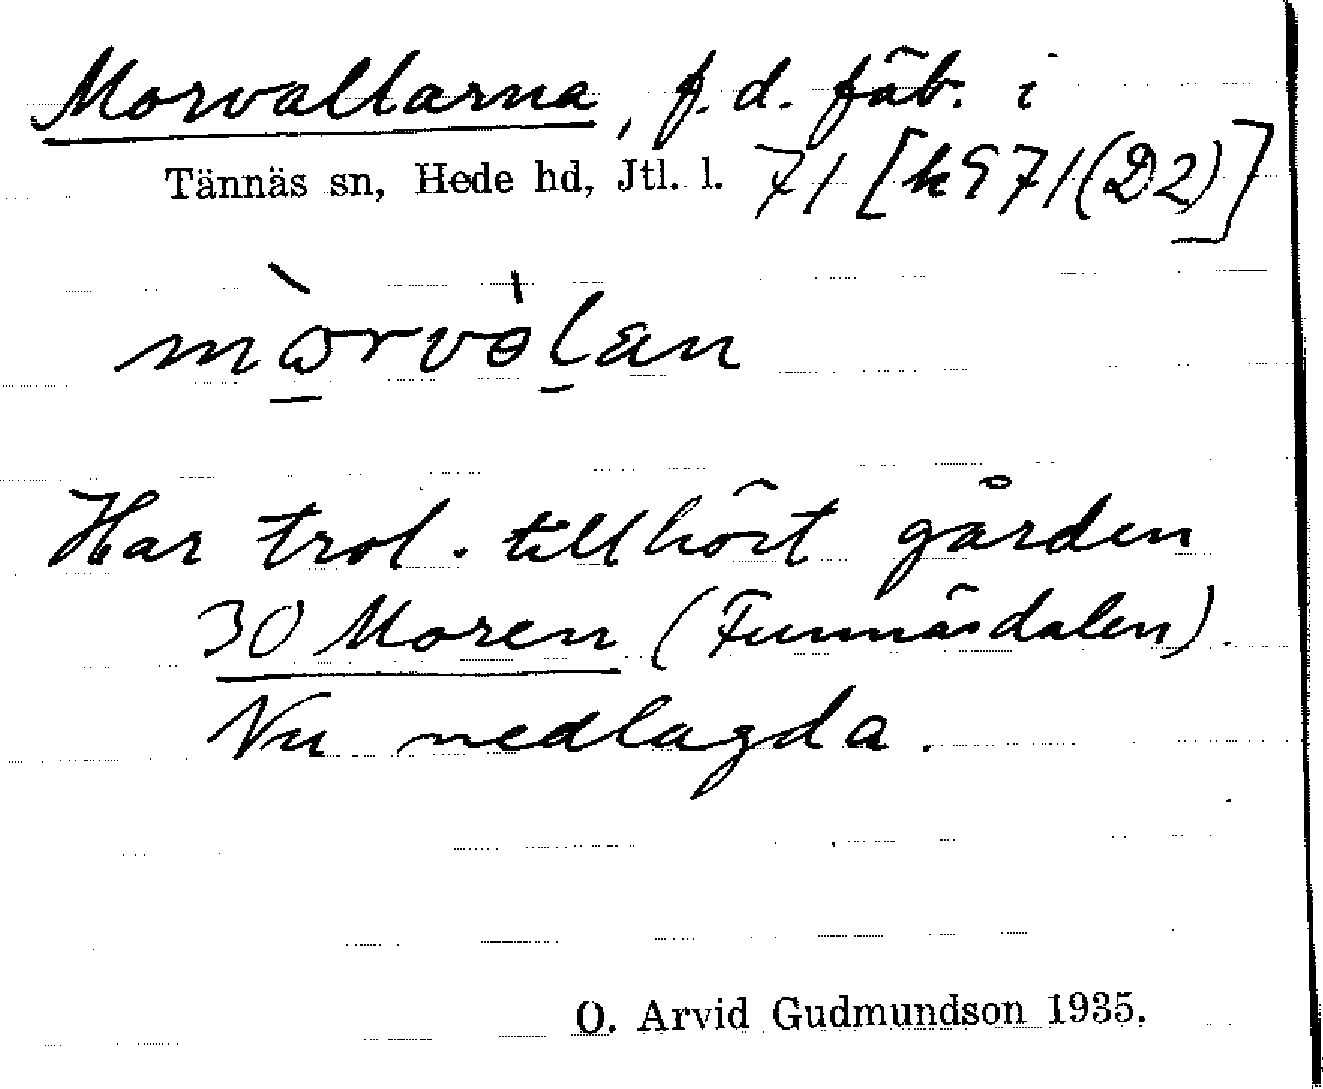 Morvallarna, f. d. fäb. i
Tännäs sn, Hede hd, Jtl. l. 71 [kg 71 (D2)]
Har trol. tillhört gården
30 Moren (Funnäsdalen).
Nu nedlagda.
O. Arvid Gudmundson 1935.